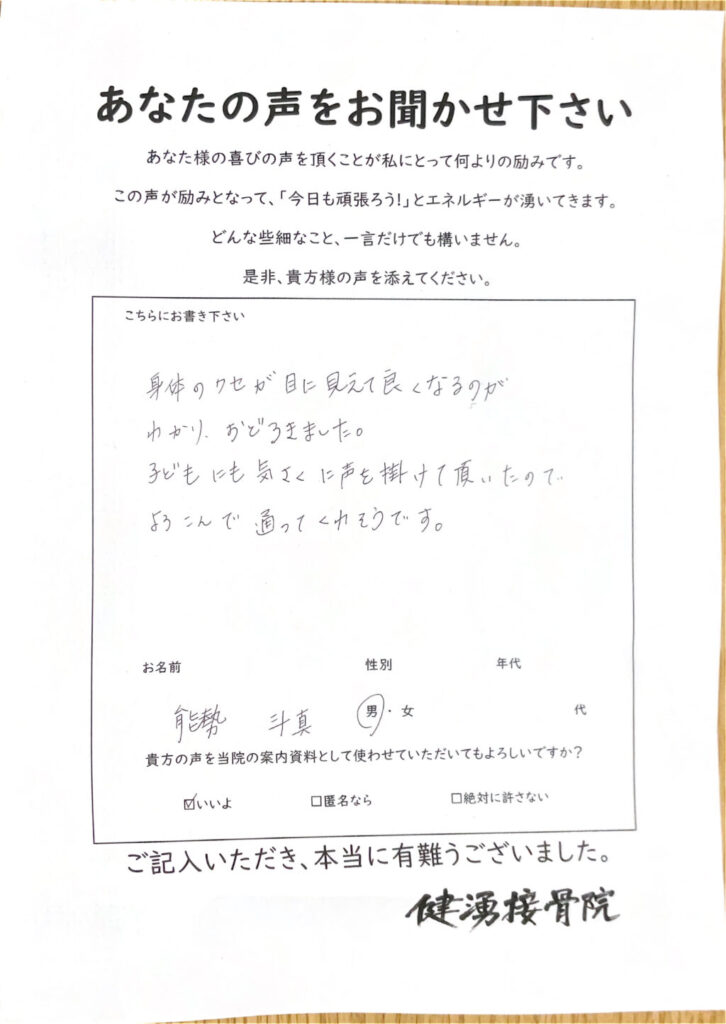 あなたの声をお聞かせ下さい
あなた様の喜びの声を頂くことが私にとって何よりの励みです。
この声が励みとなって、「今日も頑張ろう!」とエネルギーが湧いてきます。
どんな些細なこと、一言だけでも構いません。
是非、貴方様の声を添えてください。
こちらにお書き下さい
身体のクセが目に見えて良くなるのが
わかり、おどろきました。
子どもにも気さくに声を掛けて頂いたので
よろこんで通ってくれそうです。
お名前 性別 年代
能勢 斗真 男・女 代
貴方の声を当院の案内資料として使わせていただいてもよろしいですか?
☑いいよ □匿名なら □絶対に許さない
ご記入いただき、本当に有難うございました。
健湧接骨院